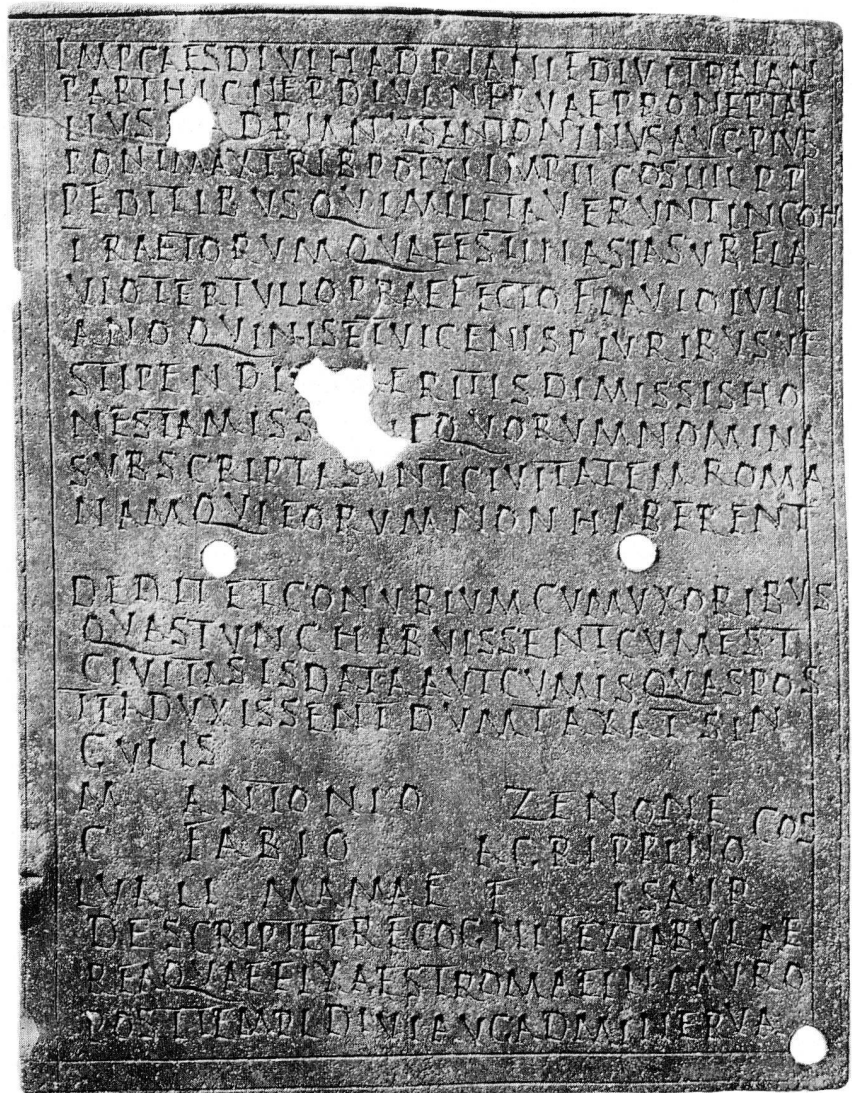 IMP CAES DIVI HADRIANI F DIVI TRAIAN
PARTHIC NEP DIVI NERVAE PRONEP T AE
LIVS DRIANVS ANTONINVS AVG PIVS
PONT MAX TRIB POT XI IMP II COS IIII P P
PEDITIBVS QVI MILITAVERVNT IN COH
I RAETORVM QVAE EST IN ASIA SVB FLA
VIO TERTVLLO PRAEFECTO FLAVIO IVLI
ANO QVINIS ET VICENIS PLVRIBVSVE
STIPENDI ERITIS DIMISSIS HO
NESTA MISS QVORVM NOMINA
SVBSCRIPTA SVNT CIVITATEM ROMA
NAM QVI EORVM NON HABERENT
DEDIT ET CONVBIVM CVM VXORIBVS
QVAS TVNC HABVISSENT CVM EST
CIVITAS IS DATA AVT CVM IS QVAS POS
TEA DVXISSENT DVMTAXAT SIN
GVLIS
M ANTONIO ZENONE COS
C FABIO AGRIPPINO
LVALI MAMAE F ISAVR
DESCRIPT ET RECOGNIT EX TABVLA AE
REA QVAE FIXA EST ROMAE IN MVRO
POST TEMPL DIVI AVG AD MINERVA